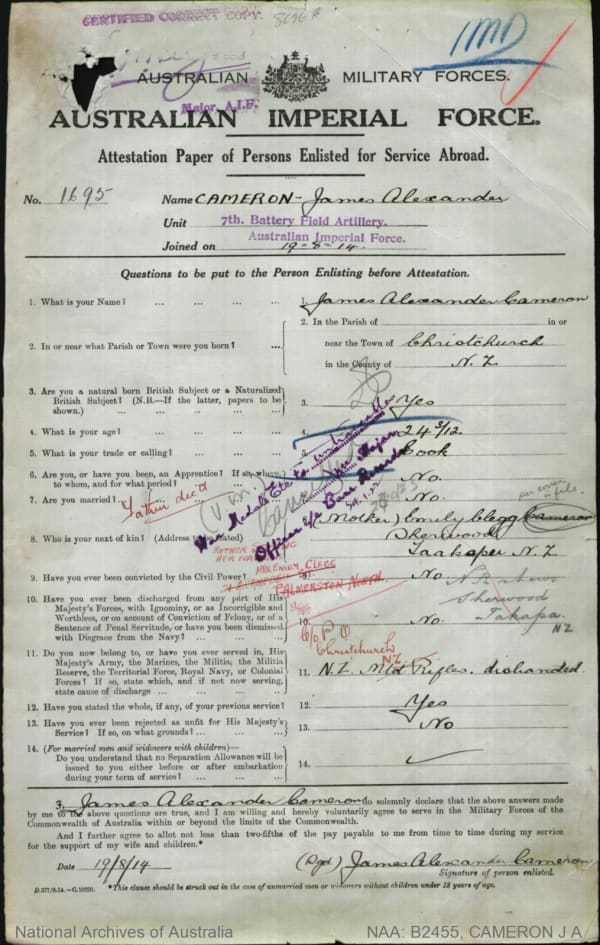 CERTIFIED CORRECT COPY.
8096
1MD
AUSTRALIAN MILITARY FORCES.
Major, A.I.F.
AUSTRALIAN IMPERIAL FORCE.
Attestation Paper of Persons Enlisted for Service Abroad.
No. 1695 Name CAMERON - James Alexander
Unit 7th. Battery Field Artillery.
Australian Imperial Force.
Joined on 19-8-14.
Questions to be put to the Person Enlisting before Attestation.
1. What is your Name? ... ... ... ... 1. James Alexander Cameron
2. In or near what Parish or Town were you born? ... 2. In the Parish of in or
near the Town of Christchurch
in the County of N.Z.
3. Are you a natural born British Subject or a Naturalized
British Subject? (N.B.—If the latter, papers to be
shown.) ... ... ... ... 3. Yes
4. What is your age? ... ... ... ... 4. 24 3/12
5. What is your trade or calling? ... ... ... 5. Cook
6. Are you, or have you been, an Apprentice? If so, where,
to whom, and for what period? ... ... No.
7. Are you married? ... No.
Father dec'd
War Medals Etc
Officer i/c Base Records
8. Who is your next of kin? (Address to be stated) (Mother) Emily Clegg Cameron
Sherwood
Taakaper N.Z
MRS EMILY CLEGG
PALMERSTON NORTH
9. Have you ever been convicted by the Civil Power? No
Sherwood
Takapa.
NZ
10. Have you ever been discharged from any part of His
Majesty's Forces, with Ignominy, or as Incorrigible and
Worthless, or on account of Conviction of Felony, or of a
Sentence of Penal Servitude, or have you been dismissed
with Disgrace from the Navy? ... ... 10. No.
C/o P O
Christchurch
N.Z.
11. Do you now belong to, or have you ever served in, His
Majesty's Army, the Marines, the Militia, the Militia
Reserve, the Territorial Force, Royal Navy, or Colonial
Forces? If so, state which, and if not now serving,
state cause of discharge ... ... ... 11. N.Z. Mtd Rifles. disbanded.
12. Have you stated the whole, if any, of your previous service? 12. Yes
13. Have you ever been rejected as unfit for His Majesty's
Service? If so, on what grounds? ... ... 13. No
14. (For married men and widowers with children)—
Do you understand that no Separation Allowance will be
issued to you either before or after embarkation
during your term of service? ... ... 14.
I, James Alexander Cameron do solemnly declare that the above answers made
by me to the above questions are true, and I am willing and hereby voluntarily agree to serve in the Military Forces of the
Commonwealth of Australia within or beyond the limits of the Commonwealth.
And I further agree to allot not less than two-fifths of the pay payable to me from time to time during my service
for the support of my wife and children.*
Date 19/8/14 (Sgd) James Alexander Cameron
Signature of person enlisted.
D.277/9.14.—C.10930. *This clause should be struck out in the case of unmarried men or widowers without children under 18 years of age.
National Archives of Australia NAA: B2455, CAMERON J A